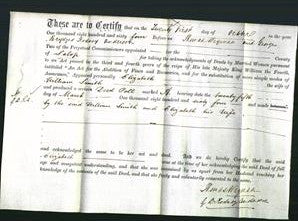 These are to Certify that on the Twenty first day of October
one thousand eight hundred and sixty four before us and George
Two of the Perpetual Commissioners appointed for the
of Salop for taking the acknowledgments of Deeds by Married Women pursuant
to an Act passed in the third and fourth years of the reign of His late Majesty King William the Fourth,
intituled "An Act for the Abolition of Fines and Recoveries, and for the substitution of more simple modes of
Assurance," Appeared personally Elizabeth
William Smith
and produced a certain Deed Poll marked A bearing date the twenty fifth
day of one thousand eight hundred and sixty four and made
by the said William Smith and Elizabeth his wife
and acknowledged the same to be her act and deed. And we do hereby Certify that the said
Elizabeth was at the time of her acknowledging the said Deed of full
age and competent understanding, and that she was examined by us apart from her Husband touching her
knowledge of the contents of the said Deed, and that she freely and voluntarily consented to the same.